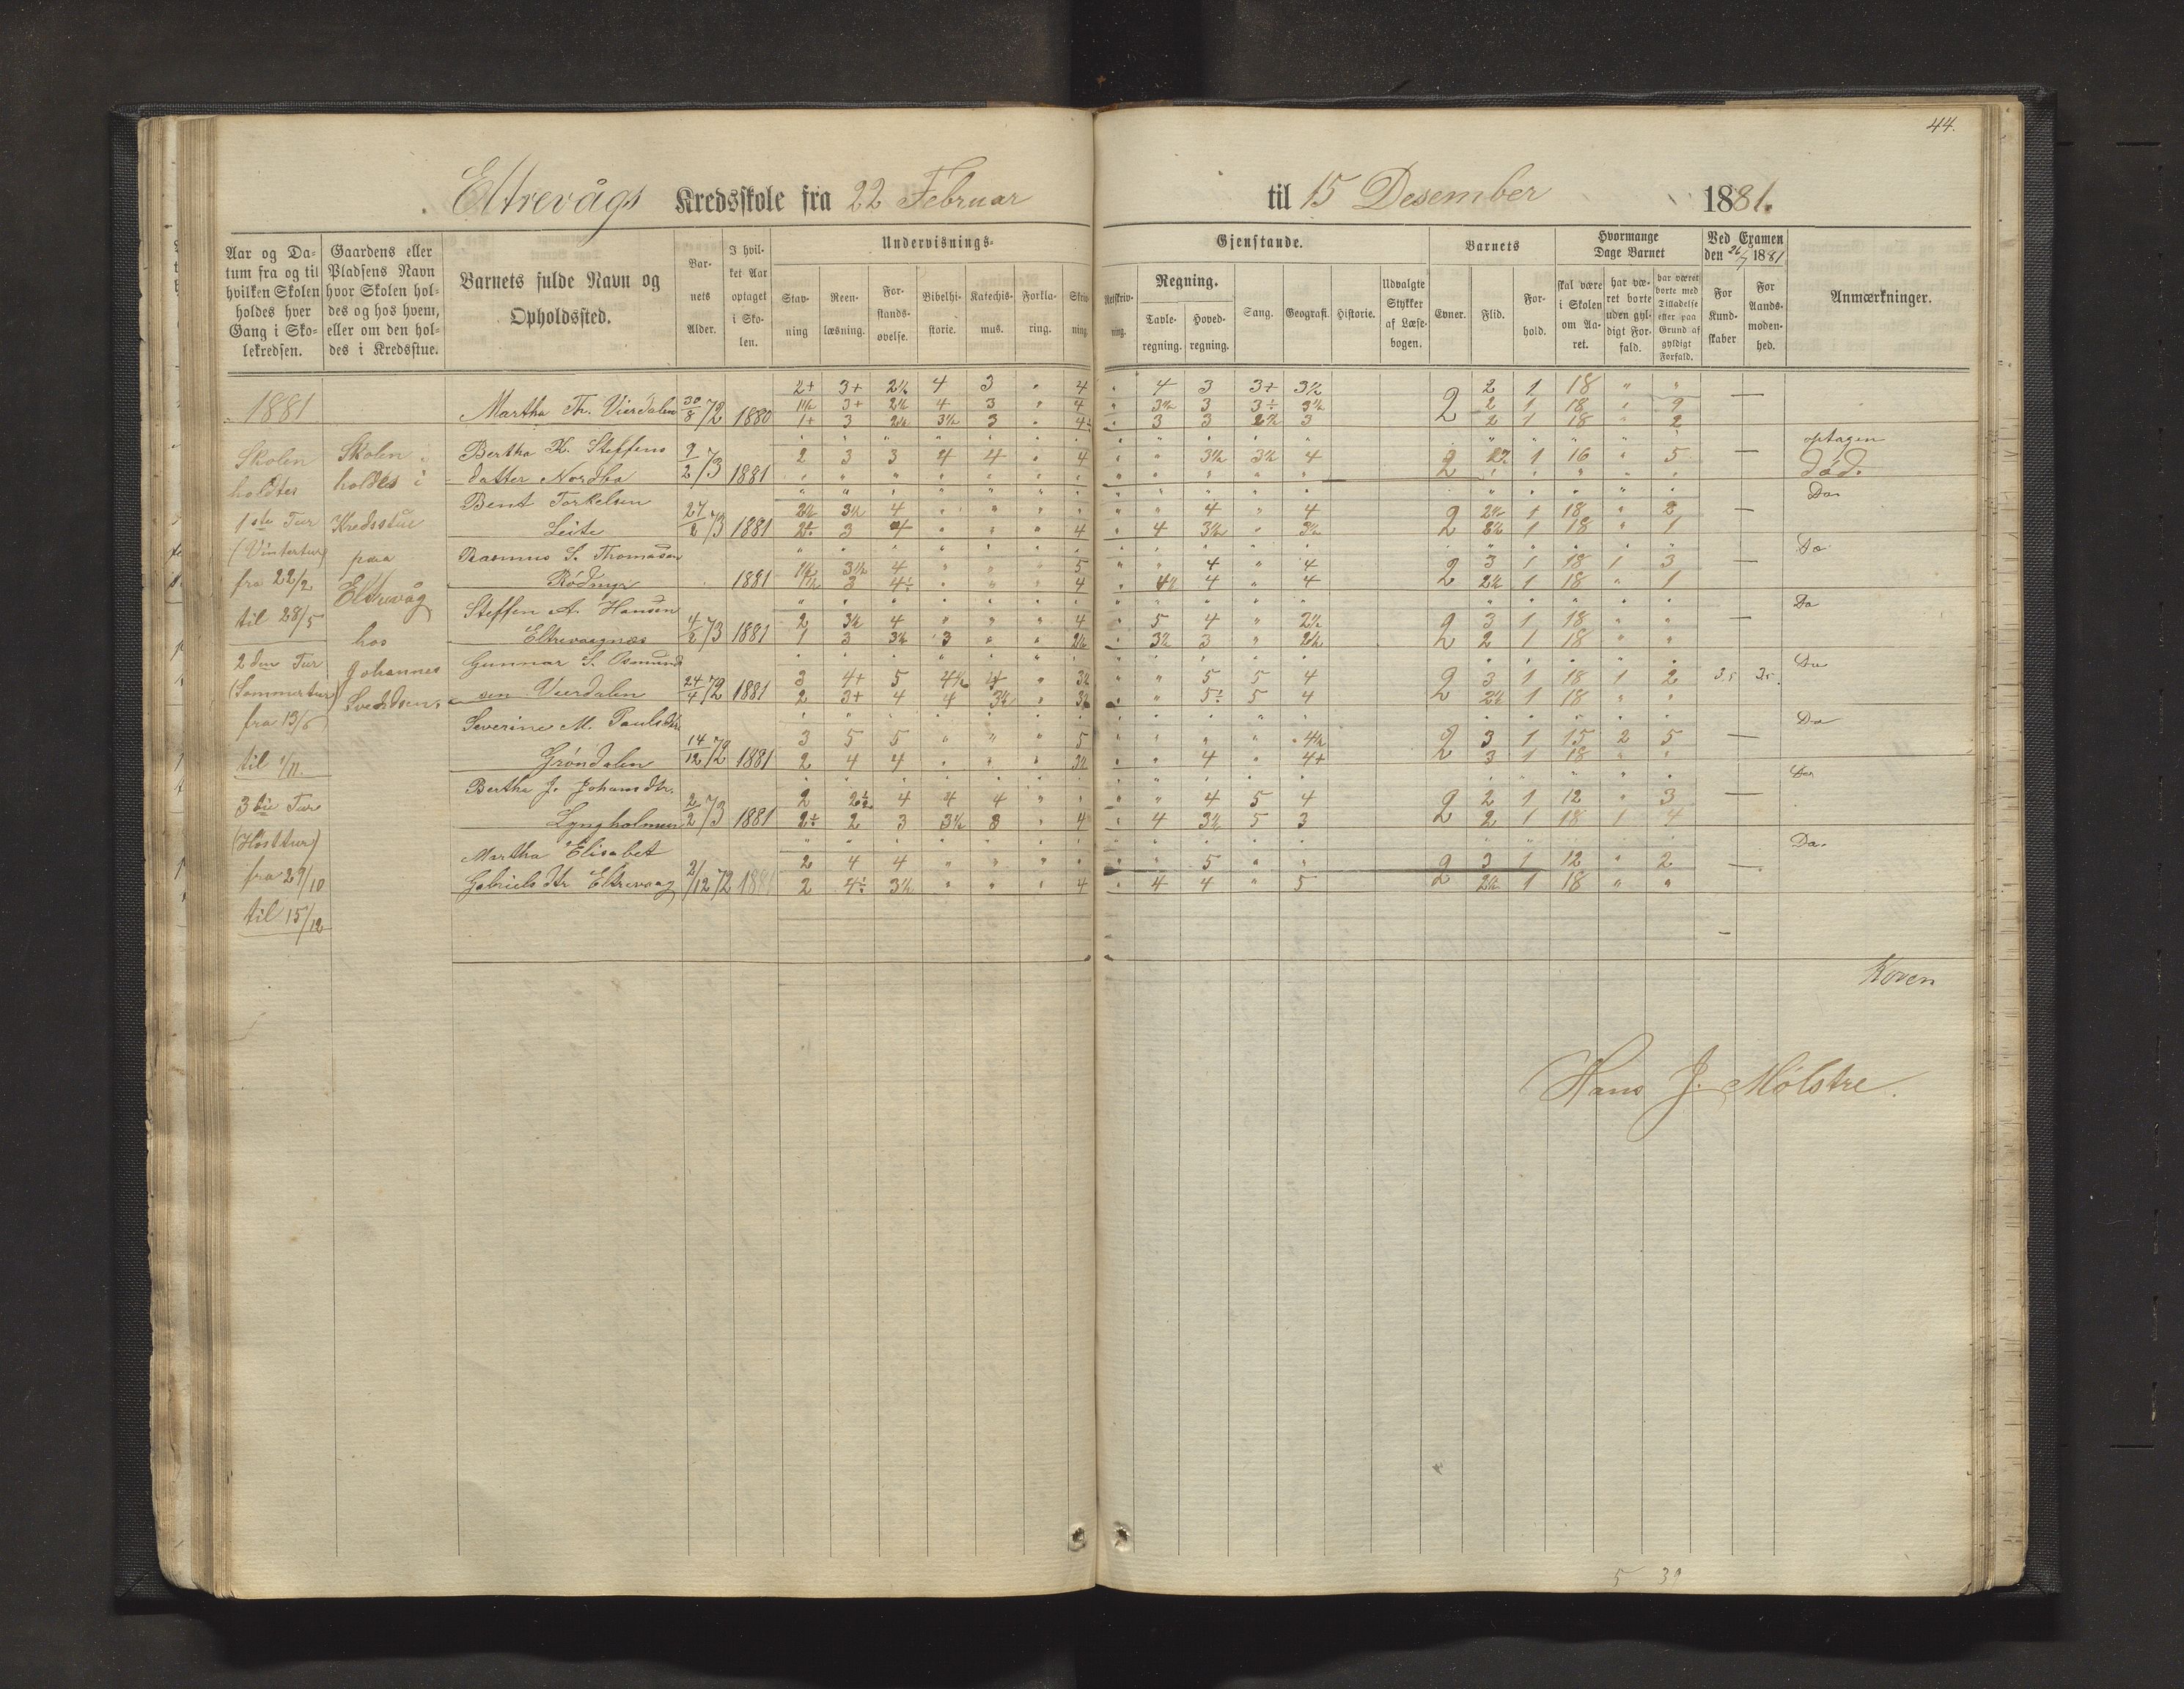 44.
Eltrevågs Kredsskole fra 22 Februar til 15 Desember 1881.
Aar og Da-
tum fra og til
hvilken Skolen
holdes hver
Gang i Sko-
lekredsen.
Gaardens eller
Pladsens Navn
hvor Skolen hol-
des og hos hvem,
eller om den hol-
des i Kredsstue.
Barnets fulde Navn og
Opholdssted.
Bar-
nets
Alder.
I hvil-
ket Aar
optaget
i Sko-
len.
Undervisnings-
Stav-
ning
Reen-
læsning.
For-
stands-
øvelse.
Bibelhi-
storie.
Katechis-
mus.
Forkla-
ring.
Skriv-
ning.
Gjenstande.
Retskriv-
ning.
Regning.
Tavle-
regning.
Hoved-
regning.
Sang.
Geografi.
Historie.
Udvalgte
Stykker
af Læse-
bogen.
Barnets
Evner.
Flid.
For-
hold.
Hvormange
Dage Barnet
skal være
i Skolen
om Aa-
ret.
har væ-
ret borte
uden gyl-
digt For-
fald.
har været
borte med
Tilladelse
eller paa
Grund af
gyldigt
Forfald.
Ved Examen
den 26/7 1881
For
Kund-
skaber
For
Aands-
moden-
hed.
Anmærkninger.
1881
Skolen
holdtes
1ste Tur
(Vintertur)
fra 22/2
til 28/5
2den Tur
(Sommertur)
fra 13/6
til 1/7.
3die Tur
(Hösttur)
fra 29/10
til 15/12
Skolen
holdes i
Kredsstue
paa
Eltrevåg
hos
Johannes
Svendsen.
Martha Th. Vierdalen 30/8 72 1880
2+ 3+ 2½ 4 3 " 4 " 4 3 3+ 3½ 2 1 18 " "
1½ 3+ 2½ 4 3 " 4 " 3½ 3 3÷ 3½ 2 2 1 18 " 9
1+ 3 2½ 3½ 3 " 4÷ " 3 3 2½ 3 2 1 18 " 2
Bertha K. Steffens optagen
datter Nordbø 9/2 73 1881 2 3 3 4 4 " 4 " " 3½ 3½ 4 2 1 16 " 5 Död.
Bent Torkelsen Do
Leite 27/2 73 1881 2½ 3½ 4 4 4 2 2½ 1 18 " 2
2÷ 3 4 4 4 3½ 3½ 2 2½ 1 18 " 1
Rasmus S. Thomasen Do
1881 1½ 3½ 4 5 4 4 2 3 1 18 1 3
1½ 3 4÷ 4 4½ 4 4 2 2½ 1 18 " 1
Steffen A. Hansen Do
Eltrevaagnæs 4/2 73 1881 2 3½ 4 4 5 4 2½ 2 3 1 18 " "
1 3 3½ 3 2½ 3½ 3 2½ 2 2 1 18 " "
Gunnar S. Osmund Do
sen Vierdalen 24/4 72 1881 3 4+ 5 4½ 4 3½ 5 5 4 2 3 1 18 1 2 3.5 3.5
2 3+ 4 4 3½ 3½ 5÷ 5 4 2 2½ 1 18 " "
Severine M. Paulsdtr Do
Gröndalen 14/12 72 1881 3 5 5 5 4½ 2 3 1 15 2 5
2 4 4 3½ 4 4+ 2 3 1 18 " "
Bertha J. Johansdtr. Do
Lyngholmen 2/2 73 1881 2 2½ 4 4 4 4 5 4 2 2 1 12 " 3
2÷ 2 3 3½ 3 4 4 3½ 5 3 2 2 1 18 1 4
Martha Elisabet Do
Gabrielsdtr Eltrevaag 2/12 72 1881 2 4 4 5 2 3 1 12 " 2
2 4÷ 3½ 4 4 4 5 2 2½ 1 18 " "
Koren
Hans J. Mölstre.
5 39